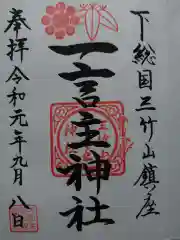 下総国三竹山鎮座
一言主神社
奉拝令和元年九月八日